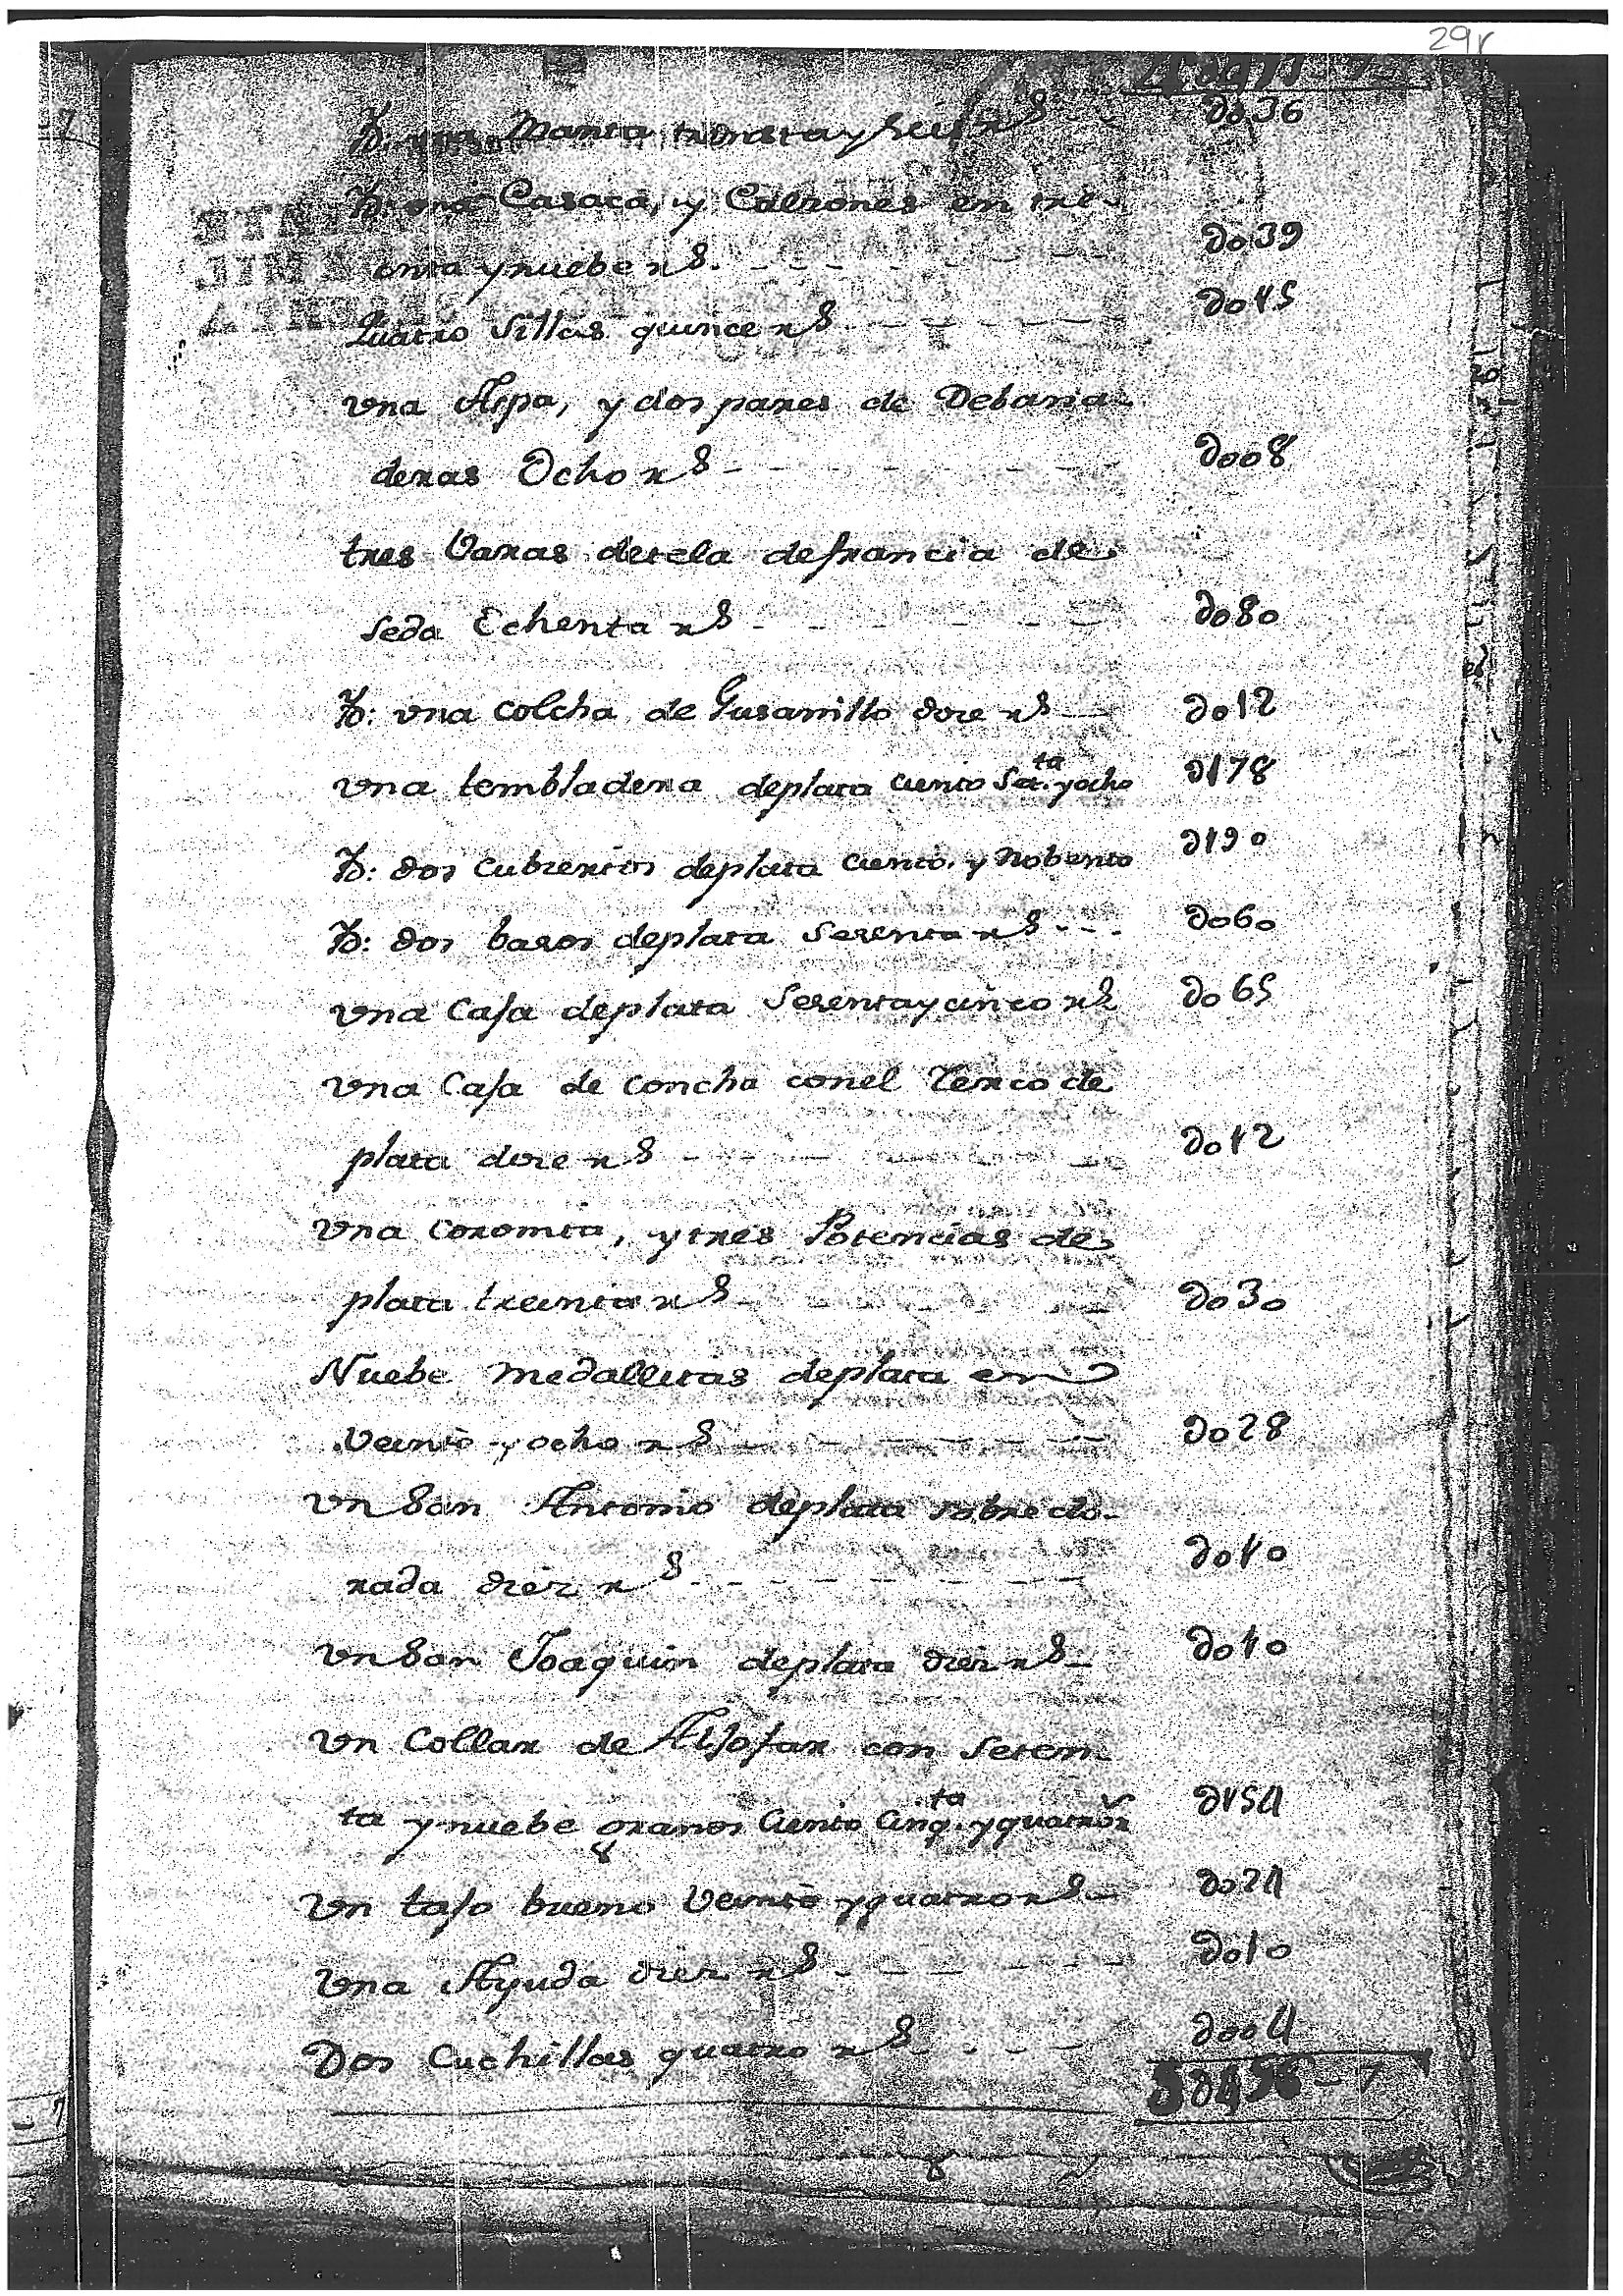 29r
Yd. una Manta treinta y seis rs - - d036
Yd: una Casaca, y Calzones en tre-
inta y nuebe rs. - - - - - - - d039
Quatro Sillas quince rs - - - - - d015
vna Aspa, y dos pares de Debana-
deras Ocho rs - - - - - - - d008
tres Varas detela defrancia de
seda Echenta rs - - - - - - - d080
Yd: vna Colcha de Gusanillo doze rs - d012
vna tembladera deplata ciento Set.ta y ocho d178
Yd: dos Cubiertos deplata ciento y Nobenta d190
Yd: dos basos deplata Sesenta rs - - - d060
vna Caja deplata Sesenta y cinco rs d065
vna Caja de Concha conel Zerco de
plata doze rs - - - - - - d012
vna Coronita, y tres Potencias de
plata treinta rs - - - - - - d030
Nuebe Medallitas deplata en
Veinte y ocho rs - - - - - - d028
vn San Antonio deplata sobredo-
rada diez rs - - - - - - - d010
vn San Joaquin deplata diez rs - d010
vn Collar de Aljofar con Seten-
ta y nuebe granos Ciento Cinq.ta y quatro rs d154
vn tajo bueno Veinte y quatro rs - d024
vna Ayuda diez rs - - - - - - d010
Dos Cuchillas quatro rs - - - - d004
5d456-7